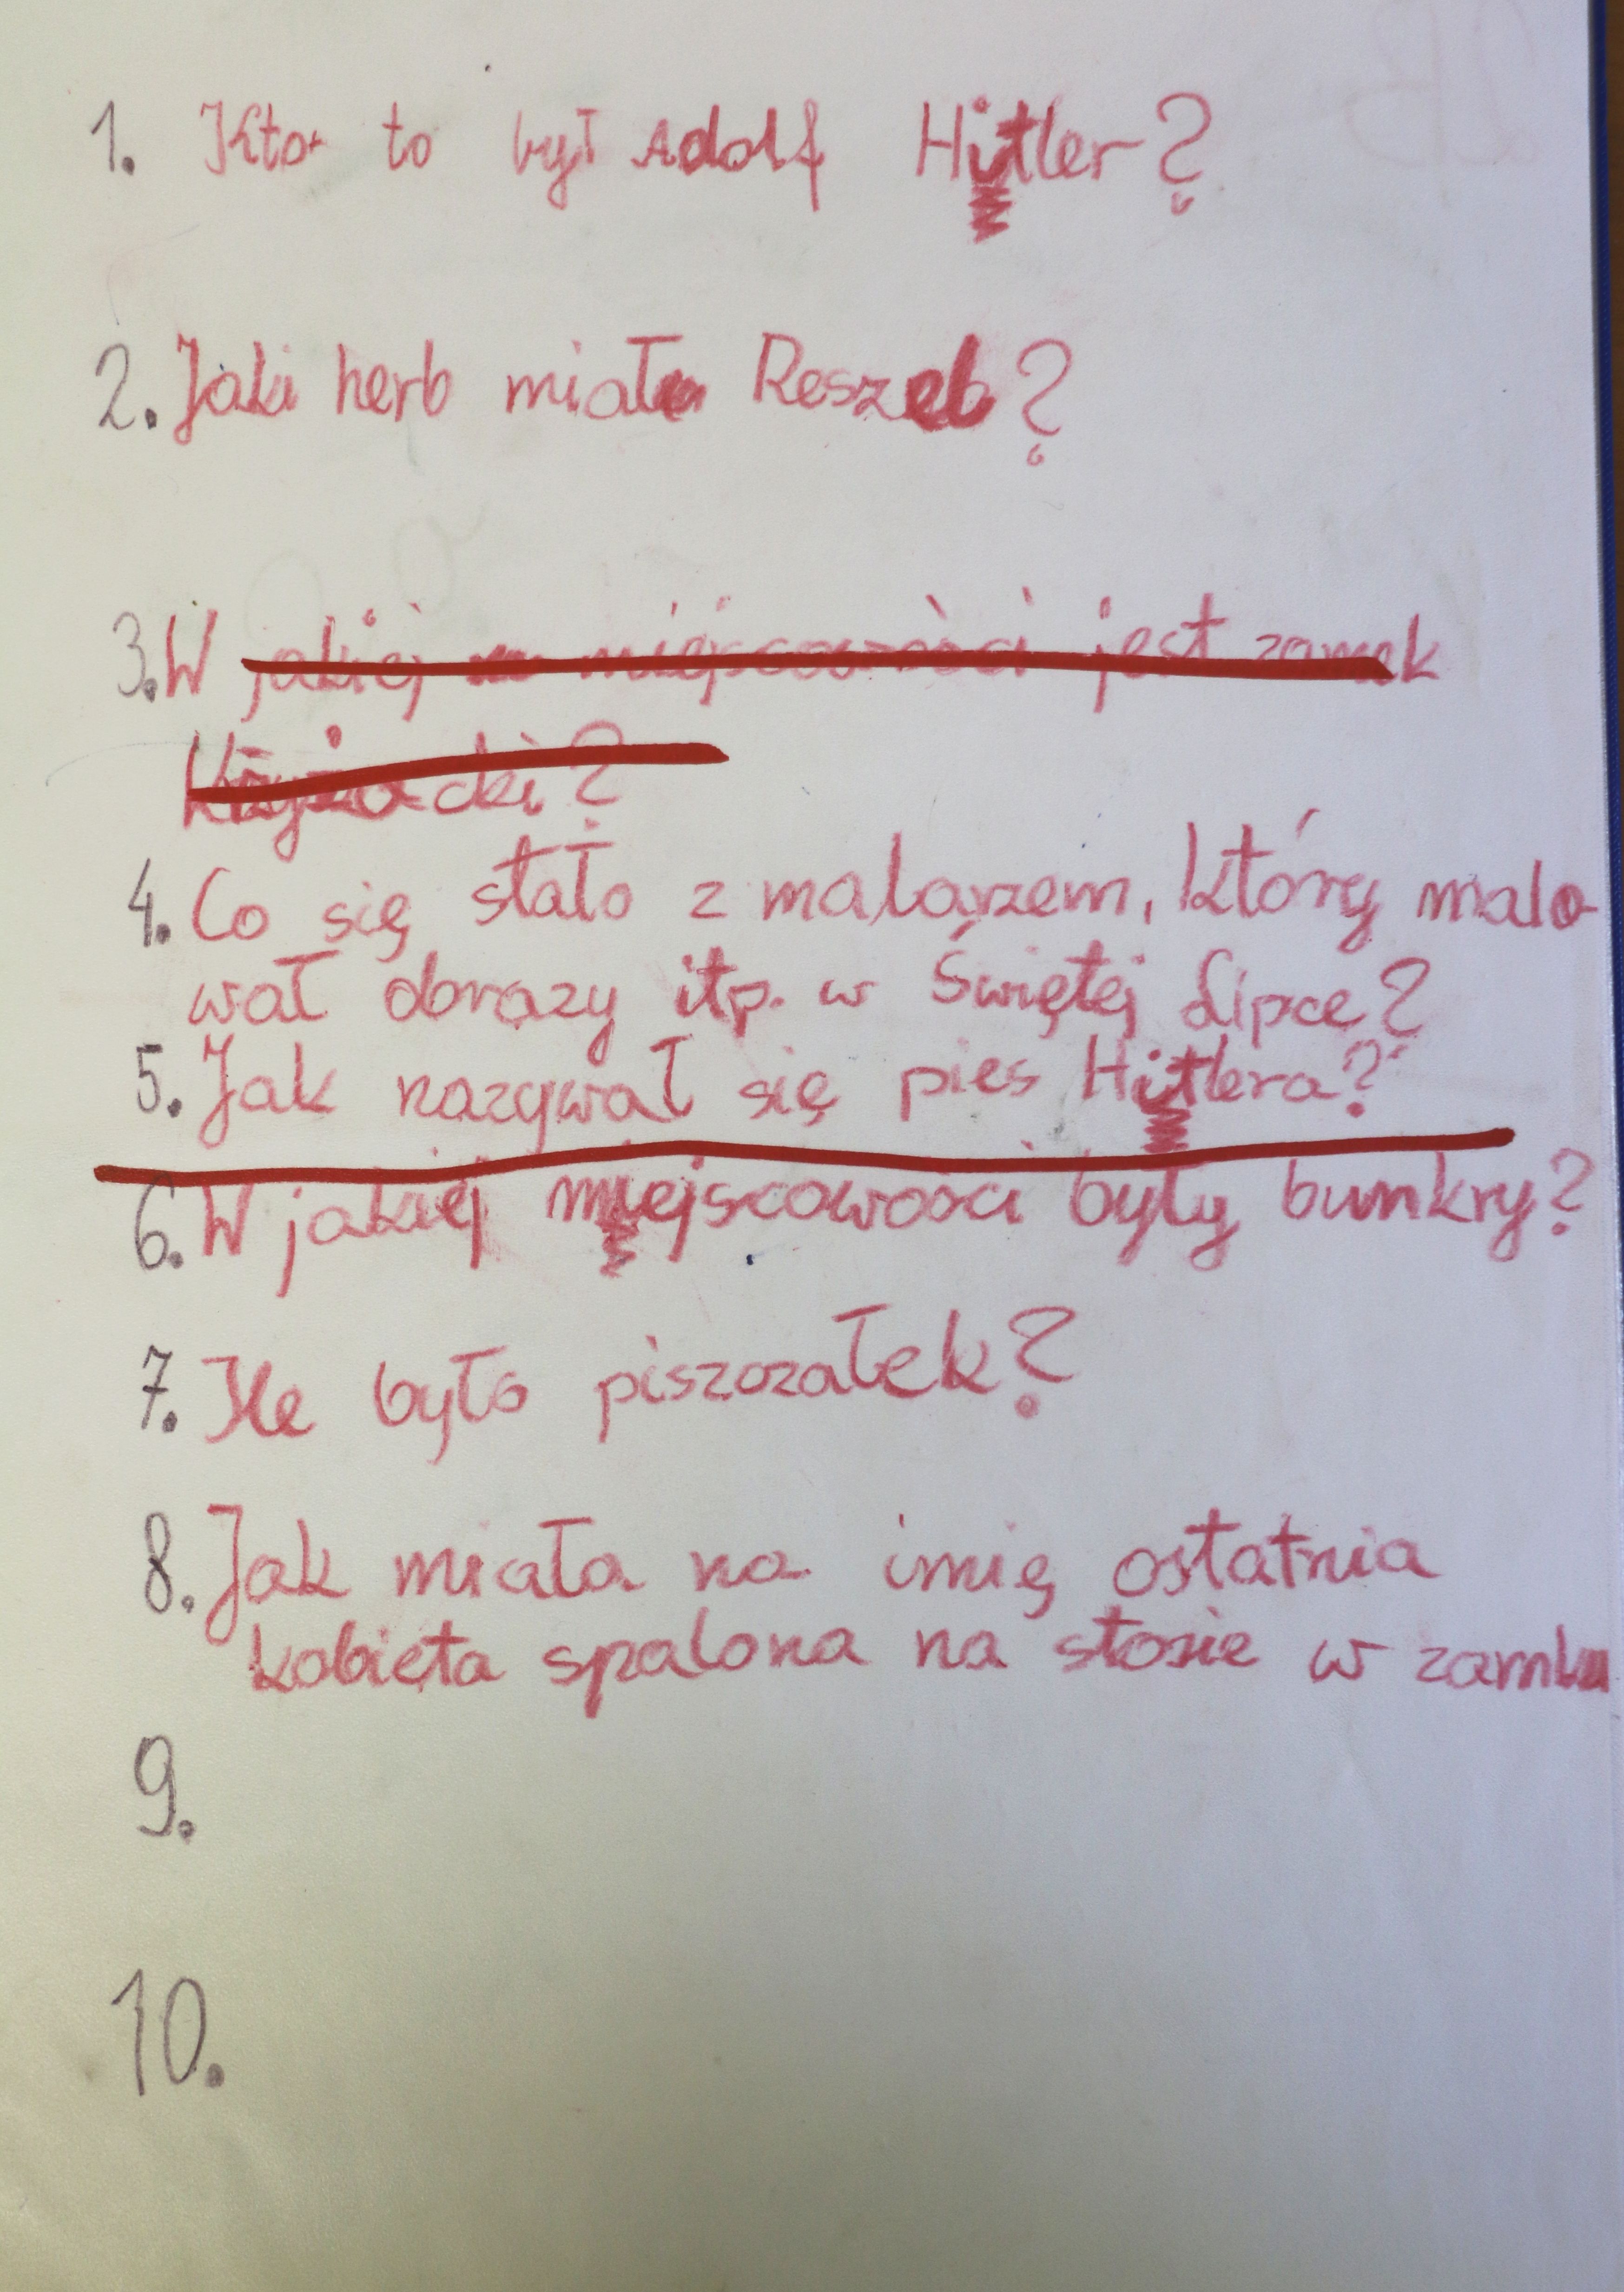 1. Kto to był Adolf Hitler?
2. Jaki herb miał Reszel?
3. W jakiej miejscowości jest zamek
Krzyżacki?
4. Co się stało z malarzem, który malo
wał obrazy itp. w Świętej Lipce?
5. Jak nazywał się pies Hitlera?
6. W jakiej miejscowosci były bunkry?
7. Ile było piszczałek?
8. Jak miała na imię ostatnia
kobieta spalona na stosie w zamku
9.
10.